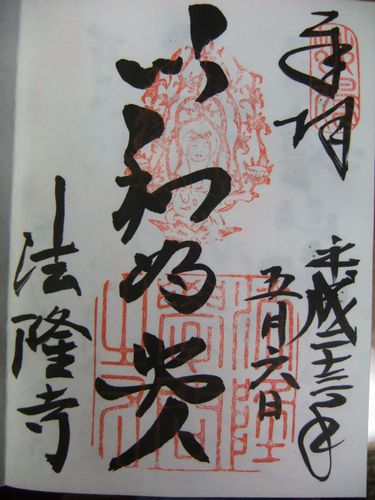 奉拝
平成二十三年
五月六日
以和為貴
法隆寺